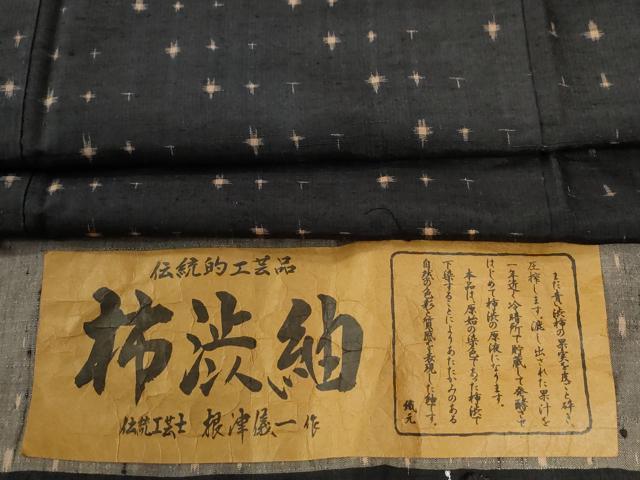 伝統的工芸品
柿渋紬
伝統工芸士 根津儀一作
まだ青い渋柿の果実を荒く砕き、
圧搾します。漉し出された果汁を
一年近く冷暗所で貯蔵して発酵させ
はじめて柿渋の原液になります。
本品は、原始の染色であった柿渋で
下染することによりあたたかみのある
自然の色彩と質感を表現した紬です。
織元